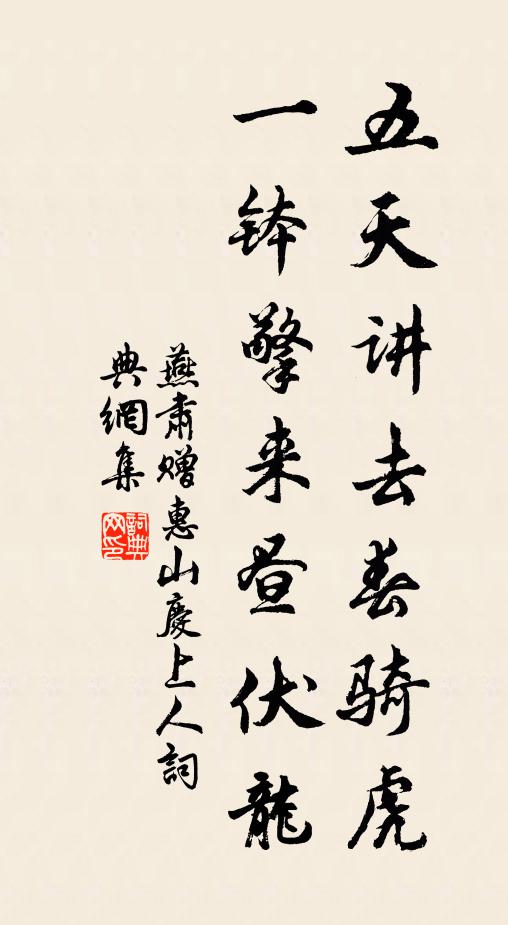 五天讲去春骑虎
一钵擎来昼伏龍
燕肃赠惠山慶上人詞
典網集
詞典
网印